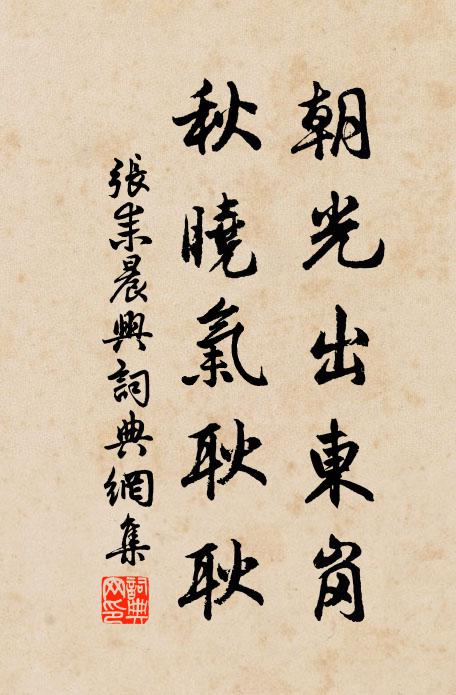 朝光出東崗
秋曉氣耿耿
張耒晨興詞典網集
詞典
网印